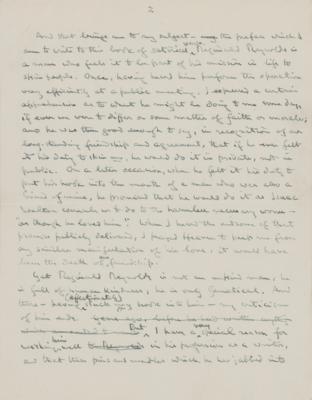 2
And that brings me to my subject – the preface which I
am to write to this book of satirical verse. Reginald Reynolds is
a man who feels it to be part of his mission in life to
skin people. Once, having heard him perform the operation
very efficiently at a public meeting, I expressed a certain
apprehension as to what he might be doing to me some day,
if ever we were to differ on some matter of faith or morals;
and he was then good enough to say, in recognition of our
long-standing friendship and agreement, that if he ever felt
it his duty to skin me, he would do it in private, not in
public. On a later occasion, when he felt it his duty to
put his hook into the mouth of a man who was also a
friend of mine, he promised that he would do it as Isaac
Walton counsels us to do to the harmless necessary worm –
as though he loved him. When I heard the outcome of that
promise publicly delivered, I prayed Heaven to keep me from
any similar manifestation of his love; it would have
been the death of our friendship.
Yet Reginald Reynolds is not an unkind man; he
is full of human kindness, he is only fanatical. And
there – having (affectionately) stuck my hook into him – my criticism
of him ends.
But I have a very special reason for
wishing him well in his profession as a writer,
and that these pins and needles which he has jabbed into